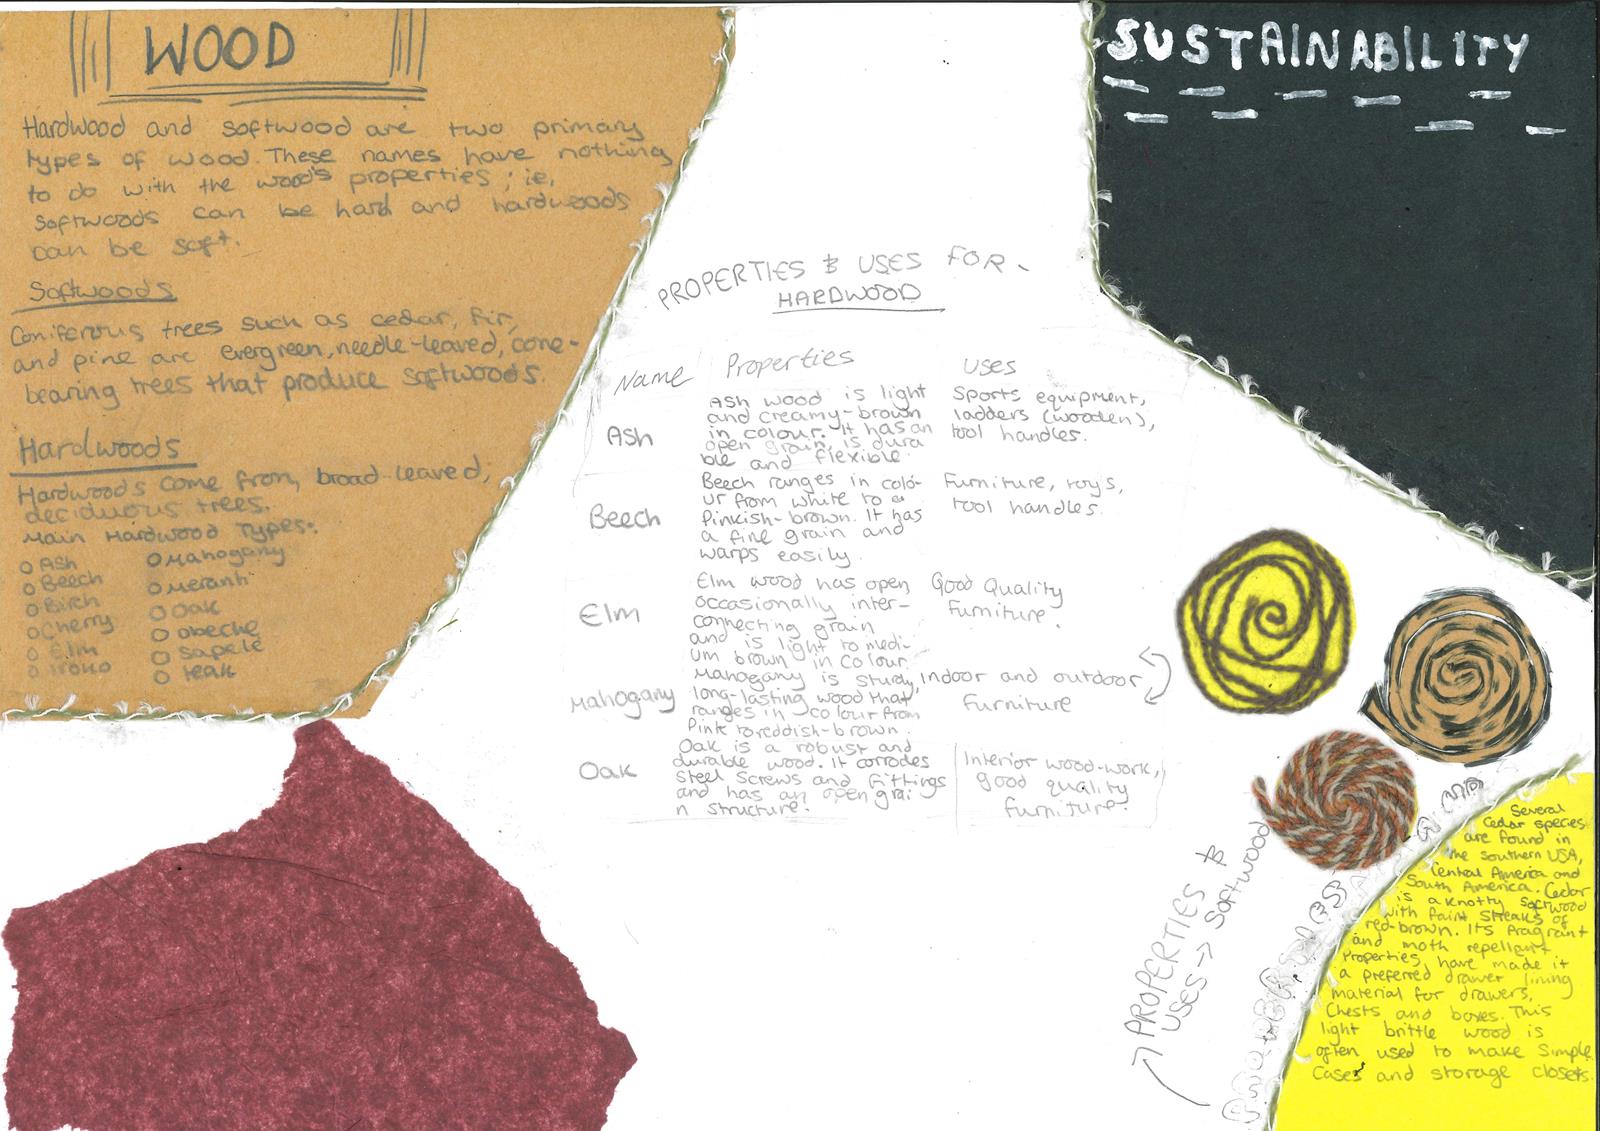 WOOD
Hardwood and softwood are two primary
types of wood. These names have nothing
to do with the wood's properties; ie,
softwoods can be hard and hardwoods
can be soft.
Softwoods
Coniferous trees such as cedar, fir,
and pine are evergreen, needle-leaved, cone-
bearing trees that produce softwoods.
Hardwoods
Hardwoods come from, broad-leaved,
deciduous trees.
Main Hardwood Types:
Ash
Beech
Birch
Cherry
Elm
Iroko
Mahogany
Meranti
Oak
obeche
Sapele
Teak
PROPERTIES & USES FOR -
HARDWOOD
Name Properties Uses
Ash
Ash wood is light
and creamy-brown
in colour. It has an
open grain, is dura
ble and flexible.
Sports equipment,
ladders (wooden),
tool handles.
Beech
Beech ranges in colo-
ur from white to a
Pinkish-brown. It has
a fine grain and
warps easily.
Furniture, toys,
tool handles.
Elm
Elm wood has open,
occasionally inter-
connecting grain
and is light to medi-
um brown in colour.
Good Quality
Furniture.
Mahogany
Mahogany is study,
long-lasting wood that
ranges in colour from
Pink to reddish-brown.
Indoor and outdoor
Furniture
Oak
Oak is a robust and
durable wood. It corrodes
Steel Screws and Fittings
and has an open grai
n structure.
Interior wood-work,
good quality
furniture.
SUSTAINABILITY
PROPERTIES &
USES -> Softwood
Several
Cedar species
are found in
the southern USA,
Central America and
South America. Cedar
is a knotty softwood
with faint streaks of
red-brown. Its fragrant
and moth repellant
Properties, have made it
a preferred drawer lining
material for drawers,
Chests and boxes. This
light brittle wood is
often used to make simple
Cases and storage closets.